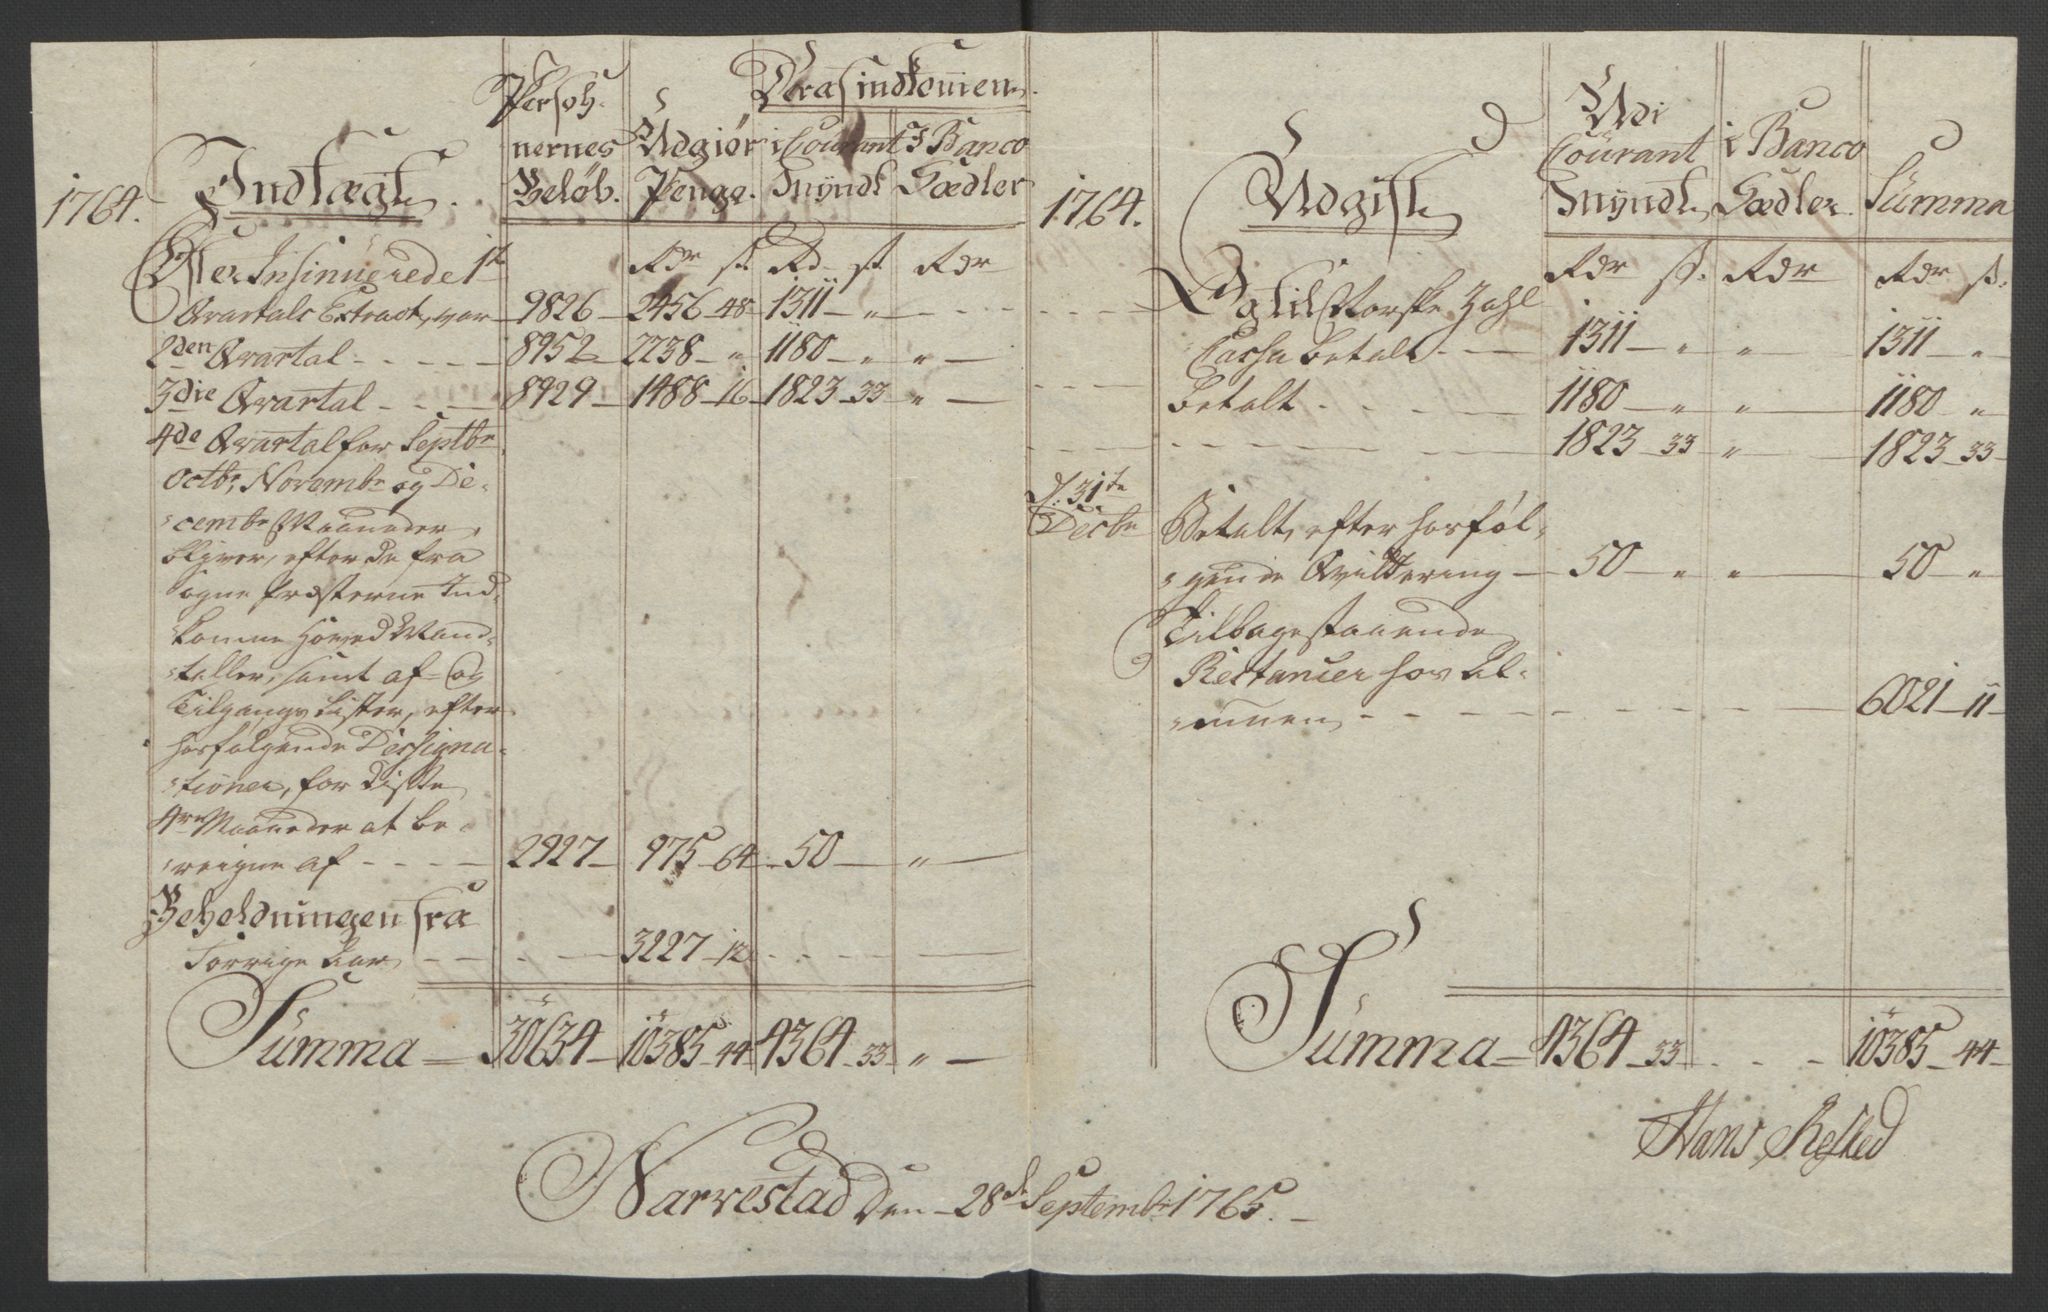 1764.
Indtægt.
Persoh-
nernes
Beløb.
Udgiør
Penge.
Deraf indkommen
i Courant
Myndt
I Banco
Sædler
Rdr ß. Rd ß Rdr
Efter Insinuerede 1te
Qvartals Extract, var 9826 2456 48 1311 "
2den Qvartal 8952 2238 " 1180 " "
3die Qvartal 8929 1488 16 1823 33 "
4de Qvartal for Septbr
Octbr, Novembr og De-
cembr Maaneder,
bliver, efter de fra
Sogne Præsterne Ind-
komne Hoved Mand-
taller, samt af- og
Tilgangs Lister, efter
hosfølgende Dessigna-
tioner, for disse
4re Maaneder at be-
reigne af 2927 975 64 50 "
Beholdningen fra
Forrige Aar 3227 12
Summa 30634 10385 44 4364 33 "
1764.
Udgift
Udi
Courant
Myndt
i Banco
Sædler
Summa
Rdr ß. Rdr Rdr ß.
Og til Norske Zahl
Cassa betalt 1311 " " 1311 "
betalt 1180 " " 1180 "
1823 33 " 1823 33
d. 31te
Decbr
Betalt, efter hosføl-
gende Qvittering 50 " " 50 "
Tilbagestaaende
Restancer hos Al-
muen 6021 11
Summa 4364 33 10385 44
Hans
Narvestad Den 28de Septembr 1765.